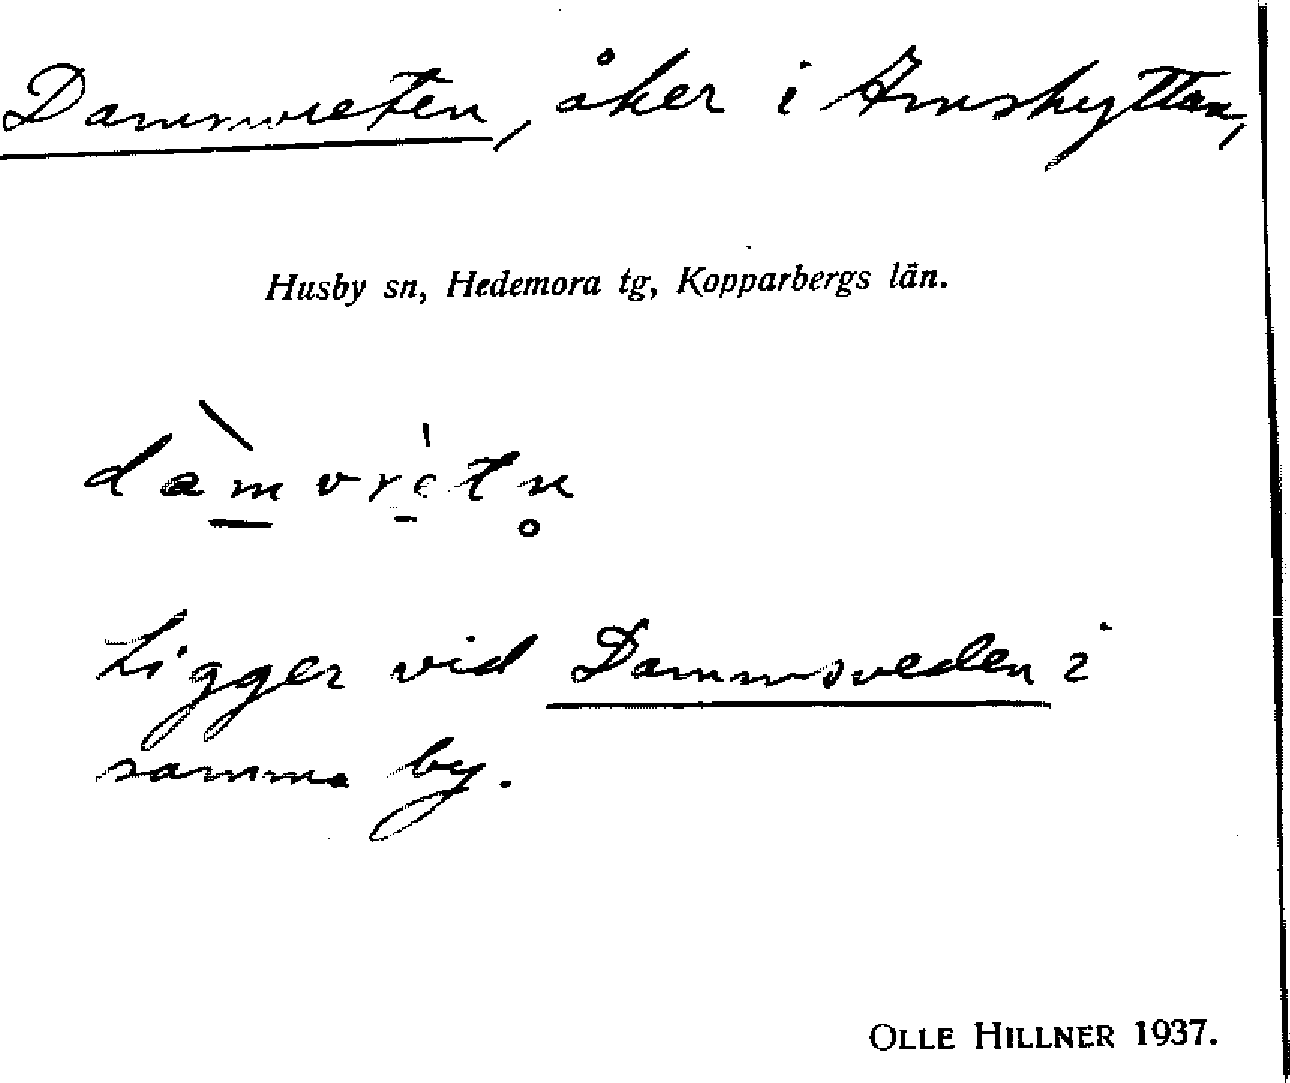 Dammvreten, åker i Amshyttan,
Husby sn, Hedemora tg, Kopparbergs län.
dàm̲vrè̲tn̥
Ligger vid Dammsveden i
samma by.
OLLE HILLNER 1937.